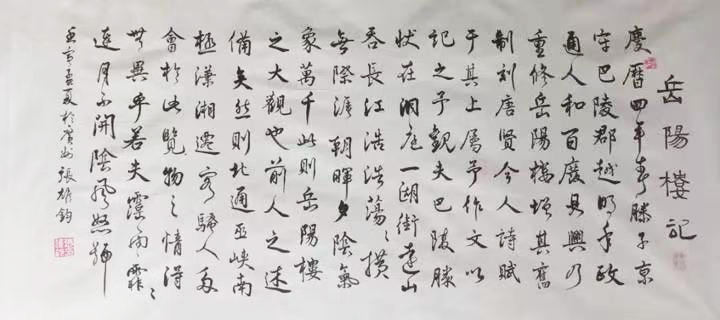 岳陽樓記
慶曆四年春滕子京
守巴陵郡越明年政
通人和百廢具興乃
重修岳陽樓增其舊
制刻唐賢今人詩賦
于其上屬予作文以
記之予觀夫巴陵勝
狀在洞庭一湖銜遠山
吞長江浩浩蕩々橫
無際涯朝暉夕陰氣
象萬千此則岳陽樓
之大觀也前人之述
備矣然則北通巫峽南
極瀟湘遷客騷人多
會於此覽物之情得
無異乎若夫霪雨霏々
連月不開陰風怒號
壬寅孟夏於州張雄鈞